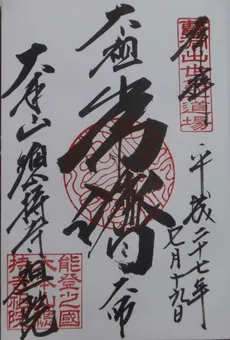 奉拝
出世
道場
平成二十七年
七月十九日
太祖
常濟
大師
大本山總持寺祖院
能登之國
大本山總
持寺祖院